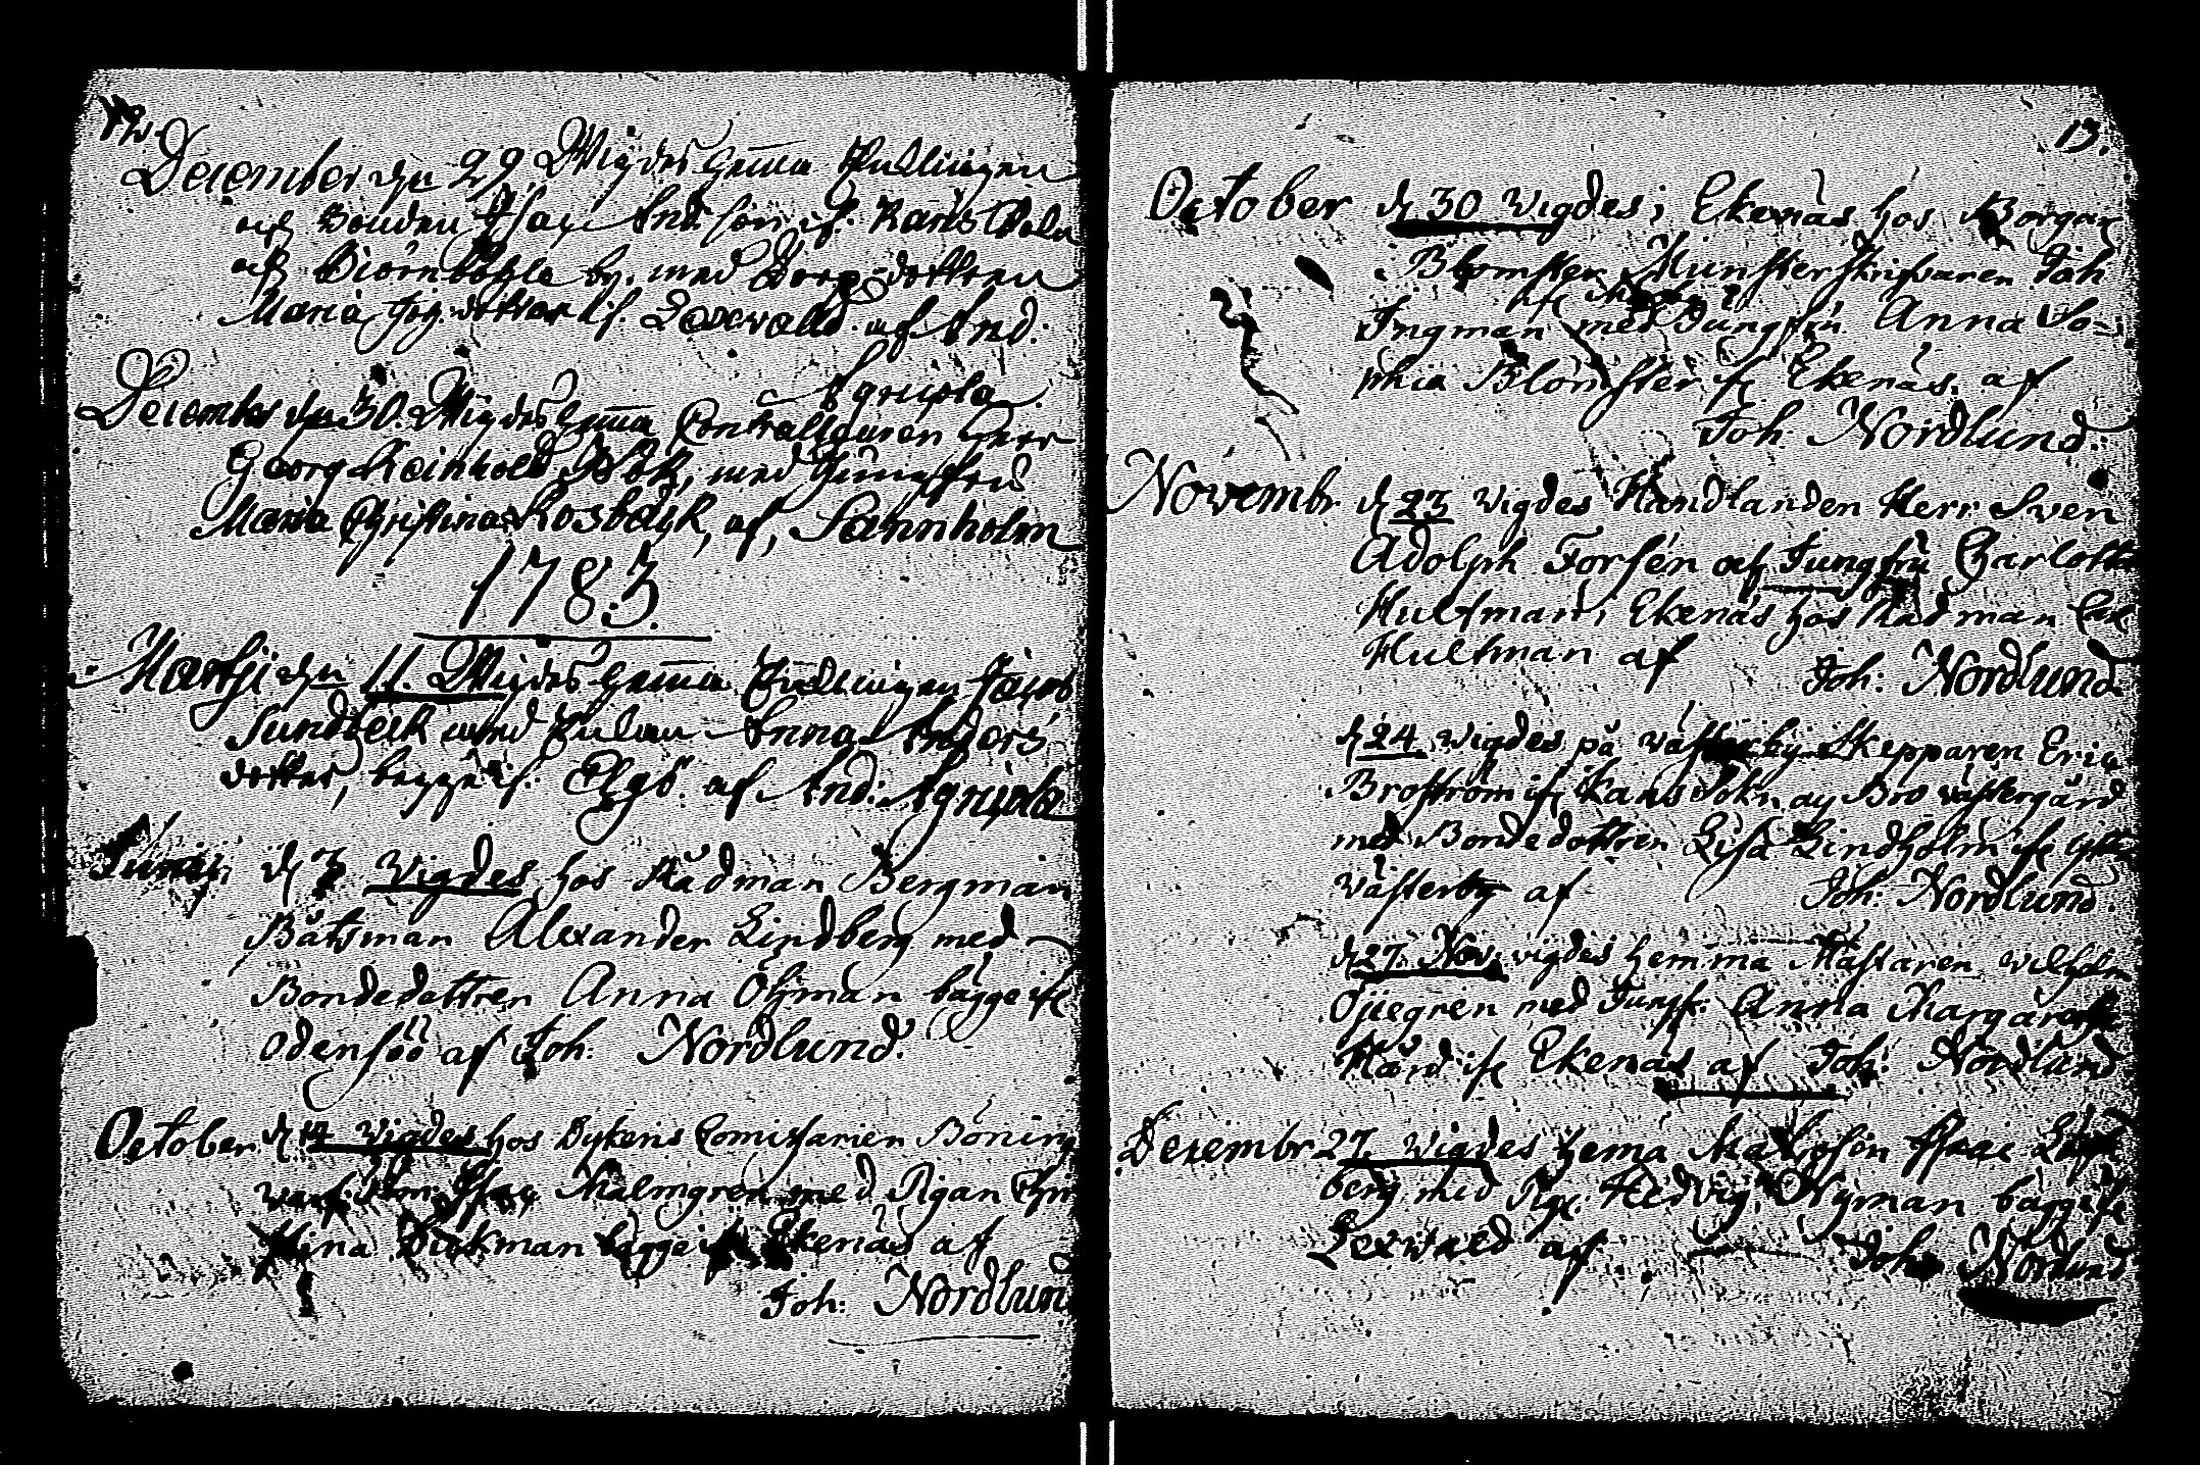 12.
December den 29 Wigdes hemma Ynglingen
och Bonden Isac And:son if: Karis Sokn
af Biörnböhle by. med Borg: dottren
Maria Joh: dotter if. Lexvalld. af And:
Agricola
December den 30. Wigdes hemma Contralleuren Herr
Georg Reinhold med Jungfru
Maria Christina Rosbäck, af, Sannholm
1783.
Martji den 11. Wigdes hemma Ynglingen Jacob
Sundbeck med Enkan Anna Anders
dotter, begge if. Ekgö. af And: Agricola
Junii d 7 Wigdes hos Rådman Bergman
Båtsman Alexander Lindberg med
Bondedottren Anna Öhman bägge ifr
Odensöö af Joh: Nordlund.
October d 14 Wigdes hos Dykeris Comissarien Böning
Isac Malmgren med Pigan Chri
stina Bäckman bägge if Ekenäs af
Joh: Nordlund
13.
October d 30 Wigdes i Ekenäs hos Borgar
Blomster Munsterskrifvaren Joh
Ingman med Jungfrn Anna So=
phia Blomster if Ekenäs af
Joh Nordlund.
Novembr d 23 Wigdes Handlanden Herr Sven
Adolph Forsén och Jungfru Charlotta
Hultman i Ekenäs hos Rådman
Hultman af Joh: Nordlund
d 24 Wigdes på Västerby Skepparen Eric
Broström if Karis Sokn ay Bro västergård
med Bondedottren Lisa Lindholm if
Västerby af Joh: Nordlund.
d 27. Nov: vigdes hemma Mästaren Vilhelm
Öjiegren med Jungf: Anna Margareta
Hård if Ekenäs af Joh: Nordlund
Dezembr 27. Wigdes hema Isac
berg med Pig: Hedvig Nyman bägge if
Lexvald af Joh Nordlund